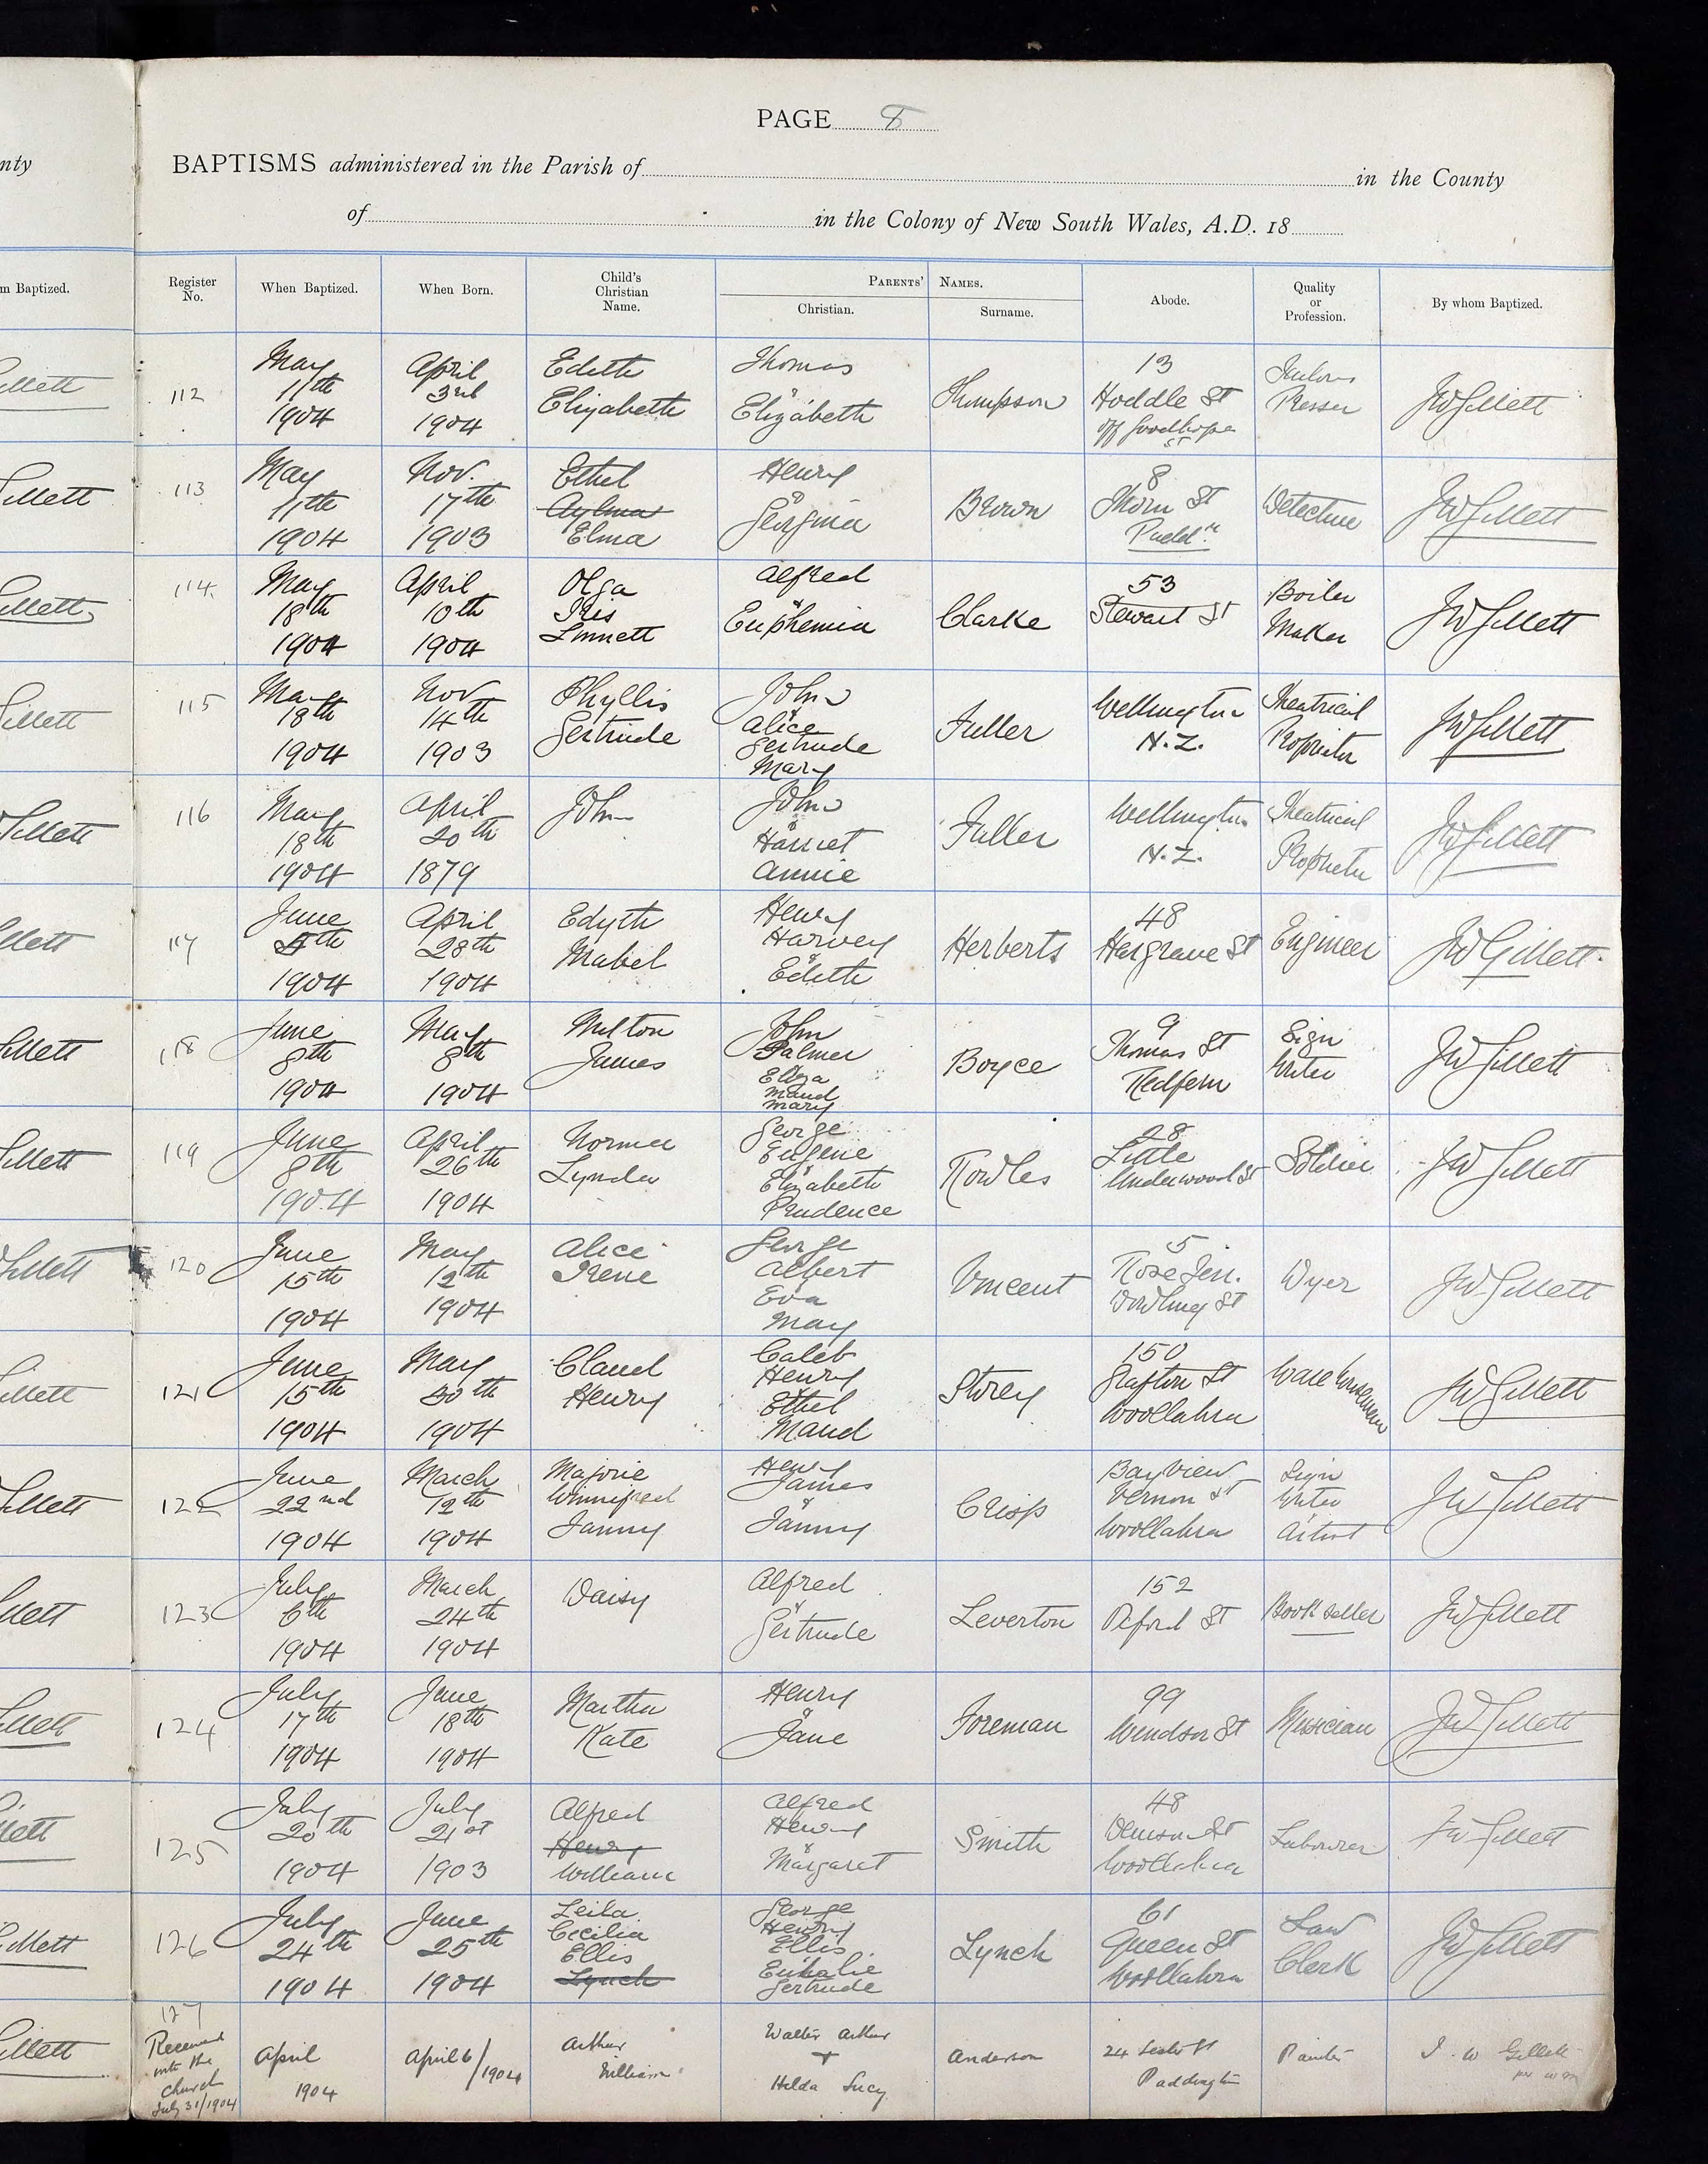 PAGE 8
BAPTISMS administered in the Parish of in the County
of in the Colony of New South Wales, A.D. 18
nty
m Baptized.
Register No.
When Baptized.
When Born.
Child's Christian Name.
PARENTS' NAMES.
Christian.
Surname.
Abode.
Quality or Profession.
By whom Baptized.
112
May 11th 1904
April 3rd 1904
Edith Elizabeth
Thomas & Elizabeth
Thompson
13 Hoddle St off Goodhope St
Tailors Presser
JW Gillett
113
May 11th 1904
Nov. 17th 1903
Ethel Aylma Elma
Henry & Georgina
Brown
8 Thorn St Padd n
Detective
JW Gillett
114
May 18th 1904
April 10th 1904
Olga Iris Linnett
Alfred & Euphemia
Clarke
53 Stewart St
Boiler Maker
JW Gillett
115
May 18th 1904
Nov 14th 1903
Phyllis Gertrude
John & Alice Gertrude Mary
Fuller
Wellington N.Z.
Theatrical Proprietor
JW Gillett
116
May 18th 1904
April 20th 1879
John
John & Harriet Annie
Fuller
Wellington N.Z.
Theatrical Proprietor
JW Gillett
117
June 5th 1904
April 28th 1904
Edyth Mabel
Henry Harvey & Edith
Herberts
48 Hargrave St
Engineer
JW Gillett
118
June 8th 1904
May 8th 1904
Milton James
John Palmer Eliza Maud Mary
Boyce
9 Thomas St Redfern
Sign Writer
JW Gillett
119
June 8th 1904
April 26th 1904
Norma Lynda
George Eugene & Elizabeth Prudence
Rowles
28 Little Underwood St
Soldier
JW Gillett
120
June 15th 1904
May 12th 1904
Alice Irene
George Albert Eva May
Vincent
5 Rose Terr. Dowling St
Dyer
JW Gillett
121
June 15th 1904
May 30th 1904
Claud Henry
Caleb Henry & Ethel Maud
Storey
150 Grafton St Woollahra
Warehouseman
JW Gillett
122
June 22nd 1904
March 12th 1904
Marjorie Winnifred Fanny
Henry James & Fanny
Crisp
Bayview Vernon St Woollahra
Sign Writer Artist
JW Gillett
123
July 6th 1904
March 24th 1904
Daisy
Alfred & Gertrude
Leverton
152 Oxford St
Book seller
JW Gillett
124
July 17th 1904
June 18th 1904
Martha Kate
Henry & Jane
Foreman
99 Windsor St
Musician
JW Gillett
125
July 20th 1904
July 21st 1903
Alfred Henry William
Alfred Henry & Margaret
Smith
48 Denison St Woollahra
Labourer
JW Gillett
126
July 24th 1904
June 25th 1904
Leila Cecilia Ellis Lynch
George Henry Ellis & Eulalie Gertrude
Lynch
61 Queen St Woollahra
Law Clerk
JW Gillett
127
Received into the Church July 31/1904
April 1904
April 6/1904
Arthur William
Walter Arthur + Hilda Lucy
Anderson
24 St Paddington
Painter
J. W Gillett